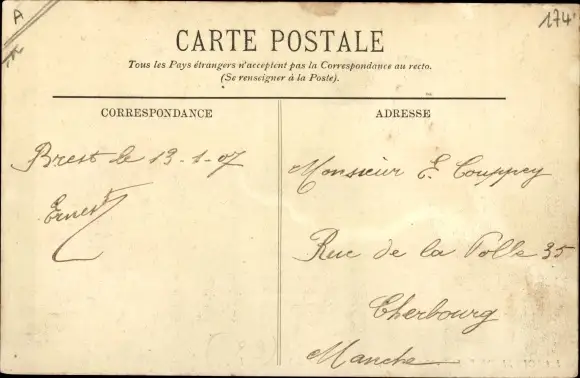 A
174
CARTE POSTALE
Tous les Pays étrangers n'acceptent pas la Correspondance au recto.
(Se renseigner à la Poste).
CORRESPONDANCE
Brest le 13-1-07
Ernest
ADRESSE
Monsieur E. Couppey
Rue de la Polle 35
Cherbourg
Manche